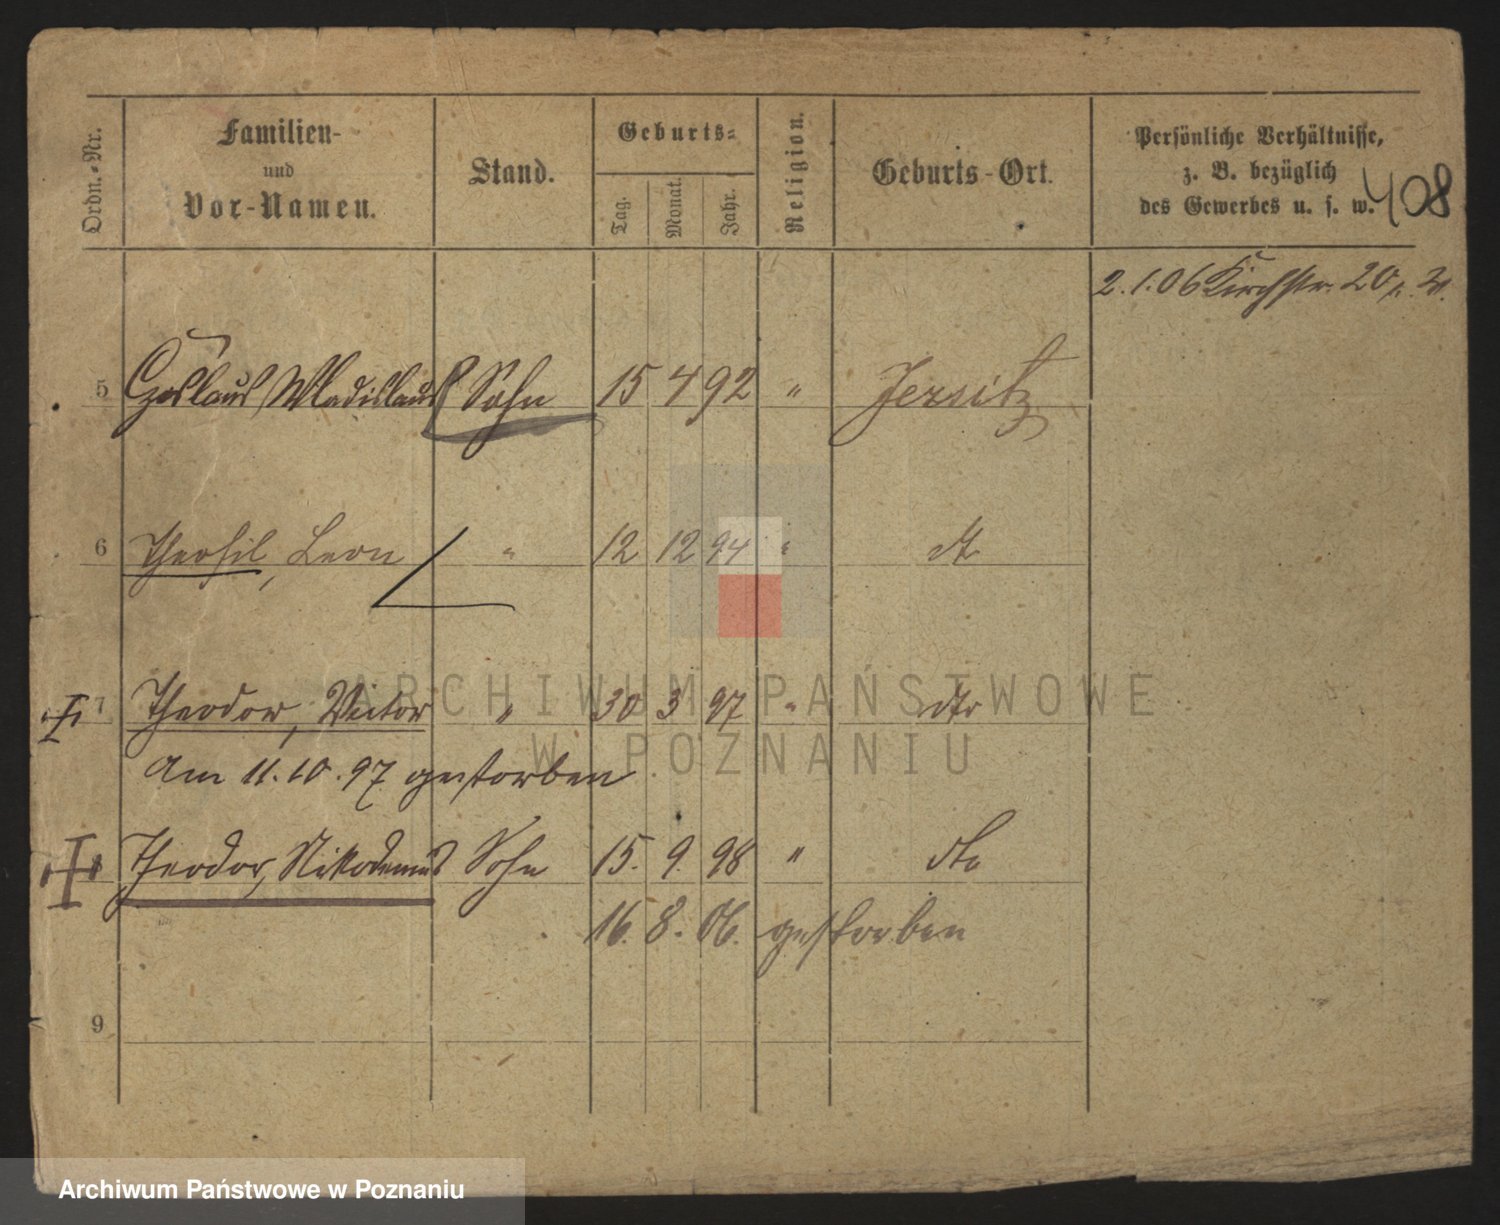 Ordn.-Nr.
Familien-
und
Vor-Namen.
Stand.
Geburts-
Tag.
Monat.
Jahr.
Religion.
Geburts-Ort.
Persönliche Verhältnisse,
z. B. bezüglich
des Gewerbes u. s. w.
408
2.1.06 Kirchstr. 20
5 Goslaus Wladislaus Sohn 15 4 92 " Jersitz
6 Theofil, Leon " 12 12 94 " dto
7 Theodor, Victor " 30 3 97 " dto
Am 11.10.97 gestorben
8 Theodor, Nikodemus Sohn 15. 9. 98 " dto
16. 8. 06. gestorben
9
ARCHIWUM PAŃSTWOWE
W POZNANIU
Archiwum Państwowe w Poznaniu